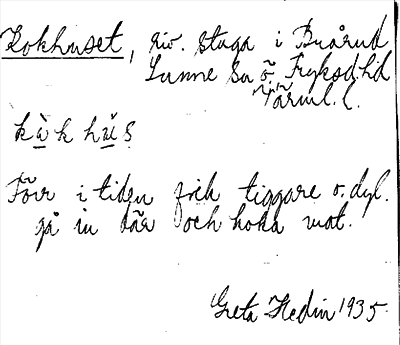 Kokhuset, riv. stuga i Buårud
Lunne sn ö. Fryksd. hd
Värml. l.
kàk hús
Förr i tiden fick tiggare o. dyl.
gå in där och koka mat.
Greta Hedin 1935.